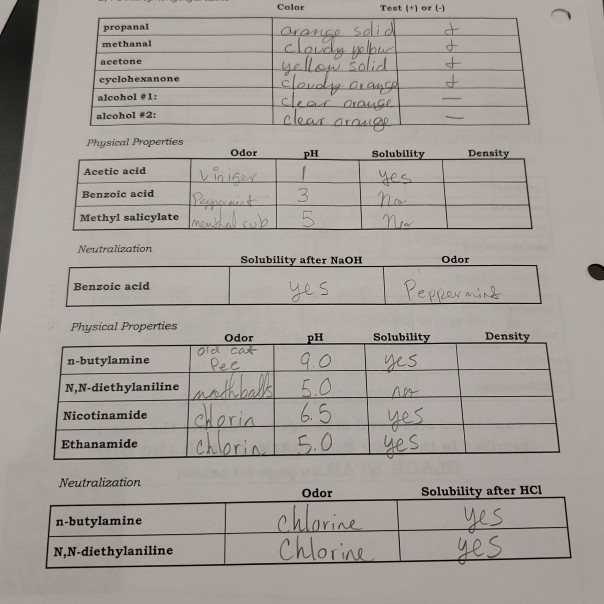 Color Test (+) or (-)
propanal orange solid +
methanal cloudy yellow +
acetone yellow solid +
cyclohexanone cloudy orange +
alcohol #1: clear orange —
alcohol #2: clear orange —
Physical Properties
Odor pH Solubility Density
Acetic acid Viniger 1 yes
Benzoic acid Peppermint 3 no
Methyl salicylate menthol rub 5 no
Neutralization
Solubility after NaOH Odor
Benzoic acid yes Peppermint
Physical Properties
Odor pH Solubility Density
n-butylamine old cat Pee 9.0 yes
N,N-diethylaniline mothballs 5.0 no
Nicotinamide chlorin 6.5 yes
Ethanamide chlorin 5.0 yes
Neutralization
Odor Solubility after HCl
n-butylamine chlorine yes
N,N-diethylaniline Chlorine yes